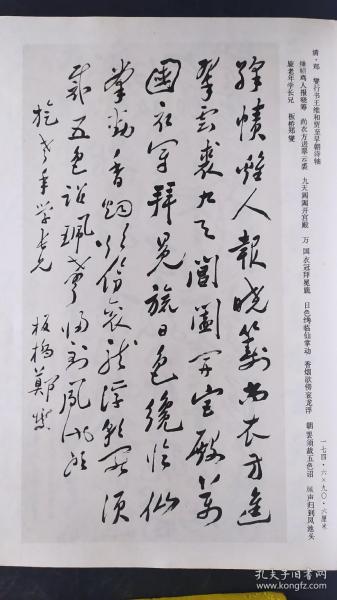 清·郑　燮行书王维和贾至早朝诗轴
绛帻鸡人报晓筹　尚衣方进翠云裘　九天阊阖开宫殿　万　国衣冠拜冕旒　日色纔临仙掌动　香烟欲傍衮龙浮　朝罢须裁五色诏　珮声归到凤池头
旋老年学长兄　板桥郑燮
一七四·六×九〇·六厘米
絳幘雞人報曉籌尚衣方進
翠雲裘九天閶闔開宫殿萬
國衣冠拜冕旒日色纔臨仙
掌動香烟欲傍衮龍浮朝罷須
裁五色詔珮聲歸到鳳池頭
旋老年学長兄　板橋鄭燮
孔夫子旧书网